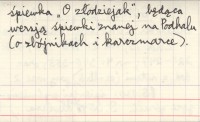 śpiewka „O złodziejak”, będąca
wersją śpiewki znanej na Podhalu
(o zbójnikach i karczmarce).